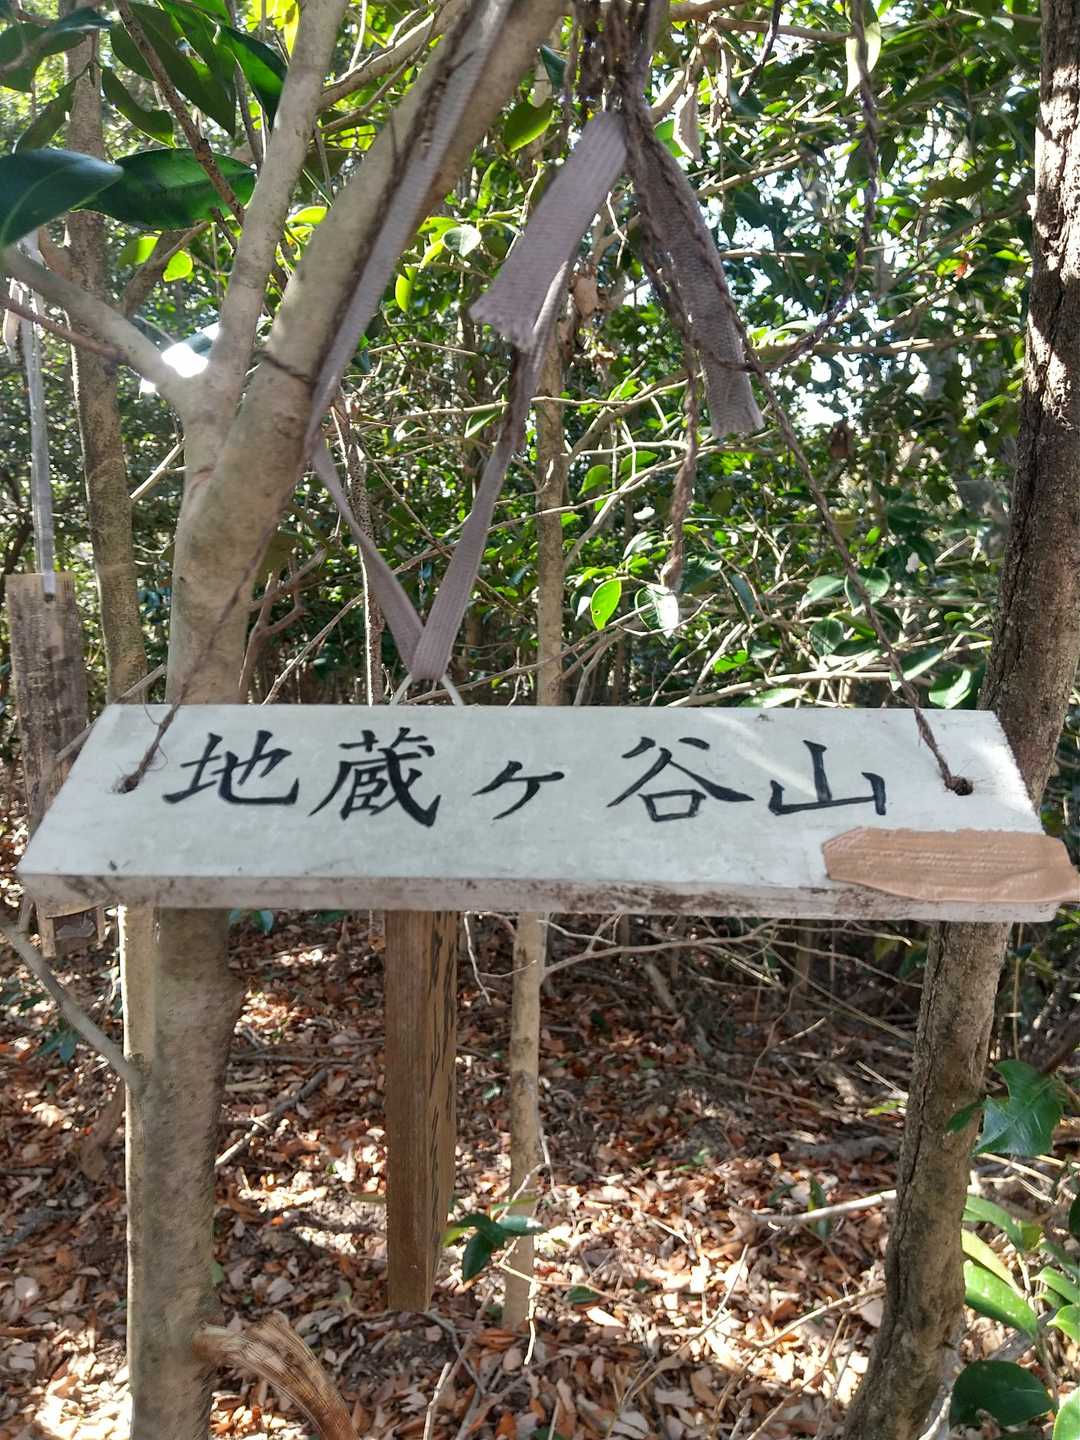 地蔵ヶ谷山